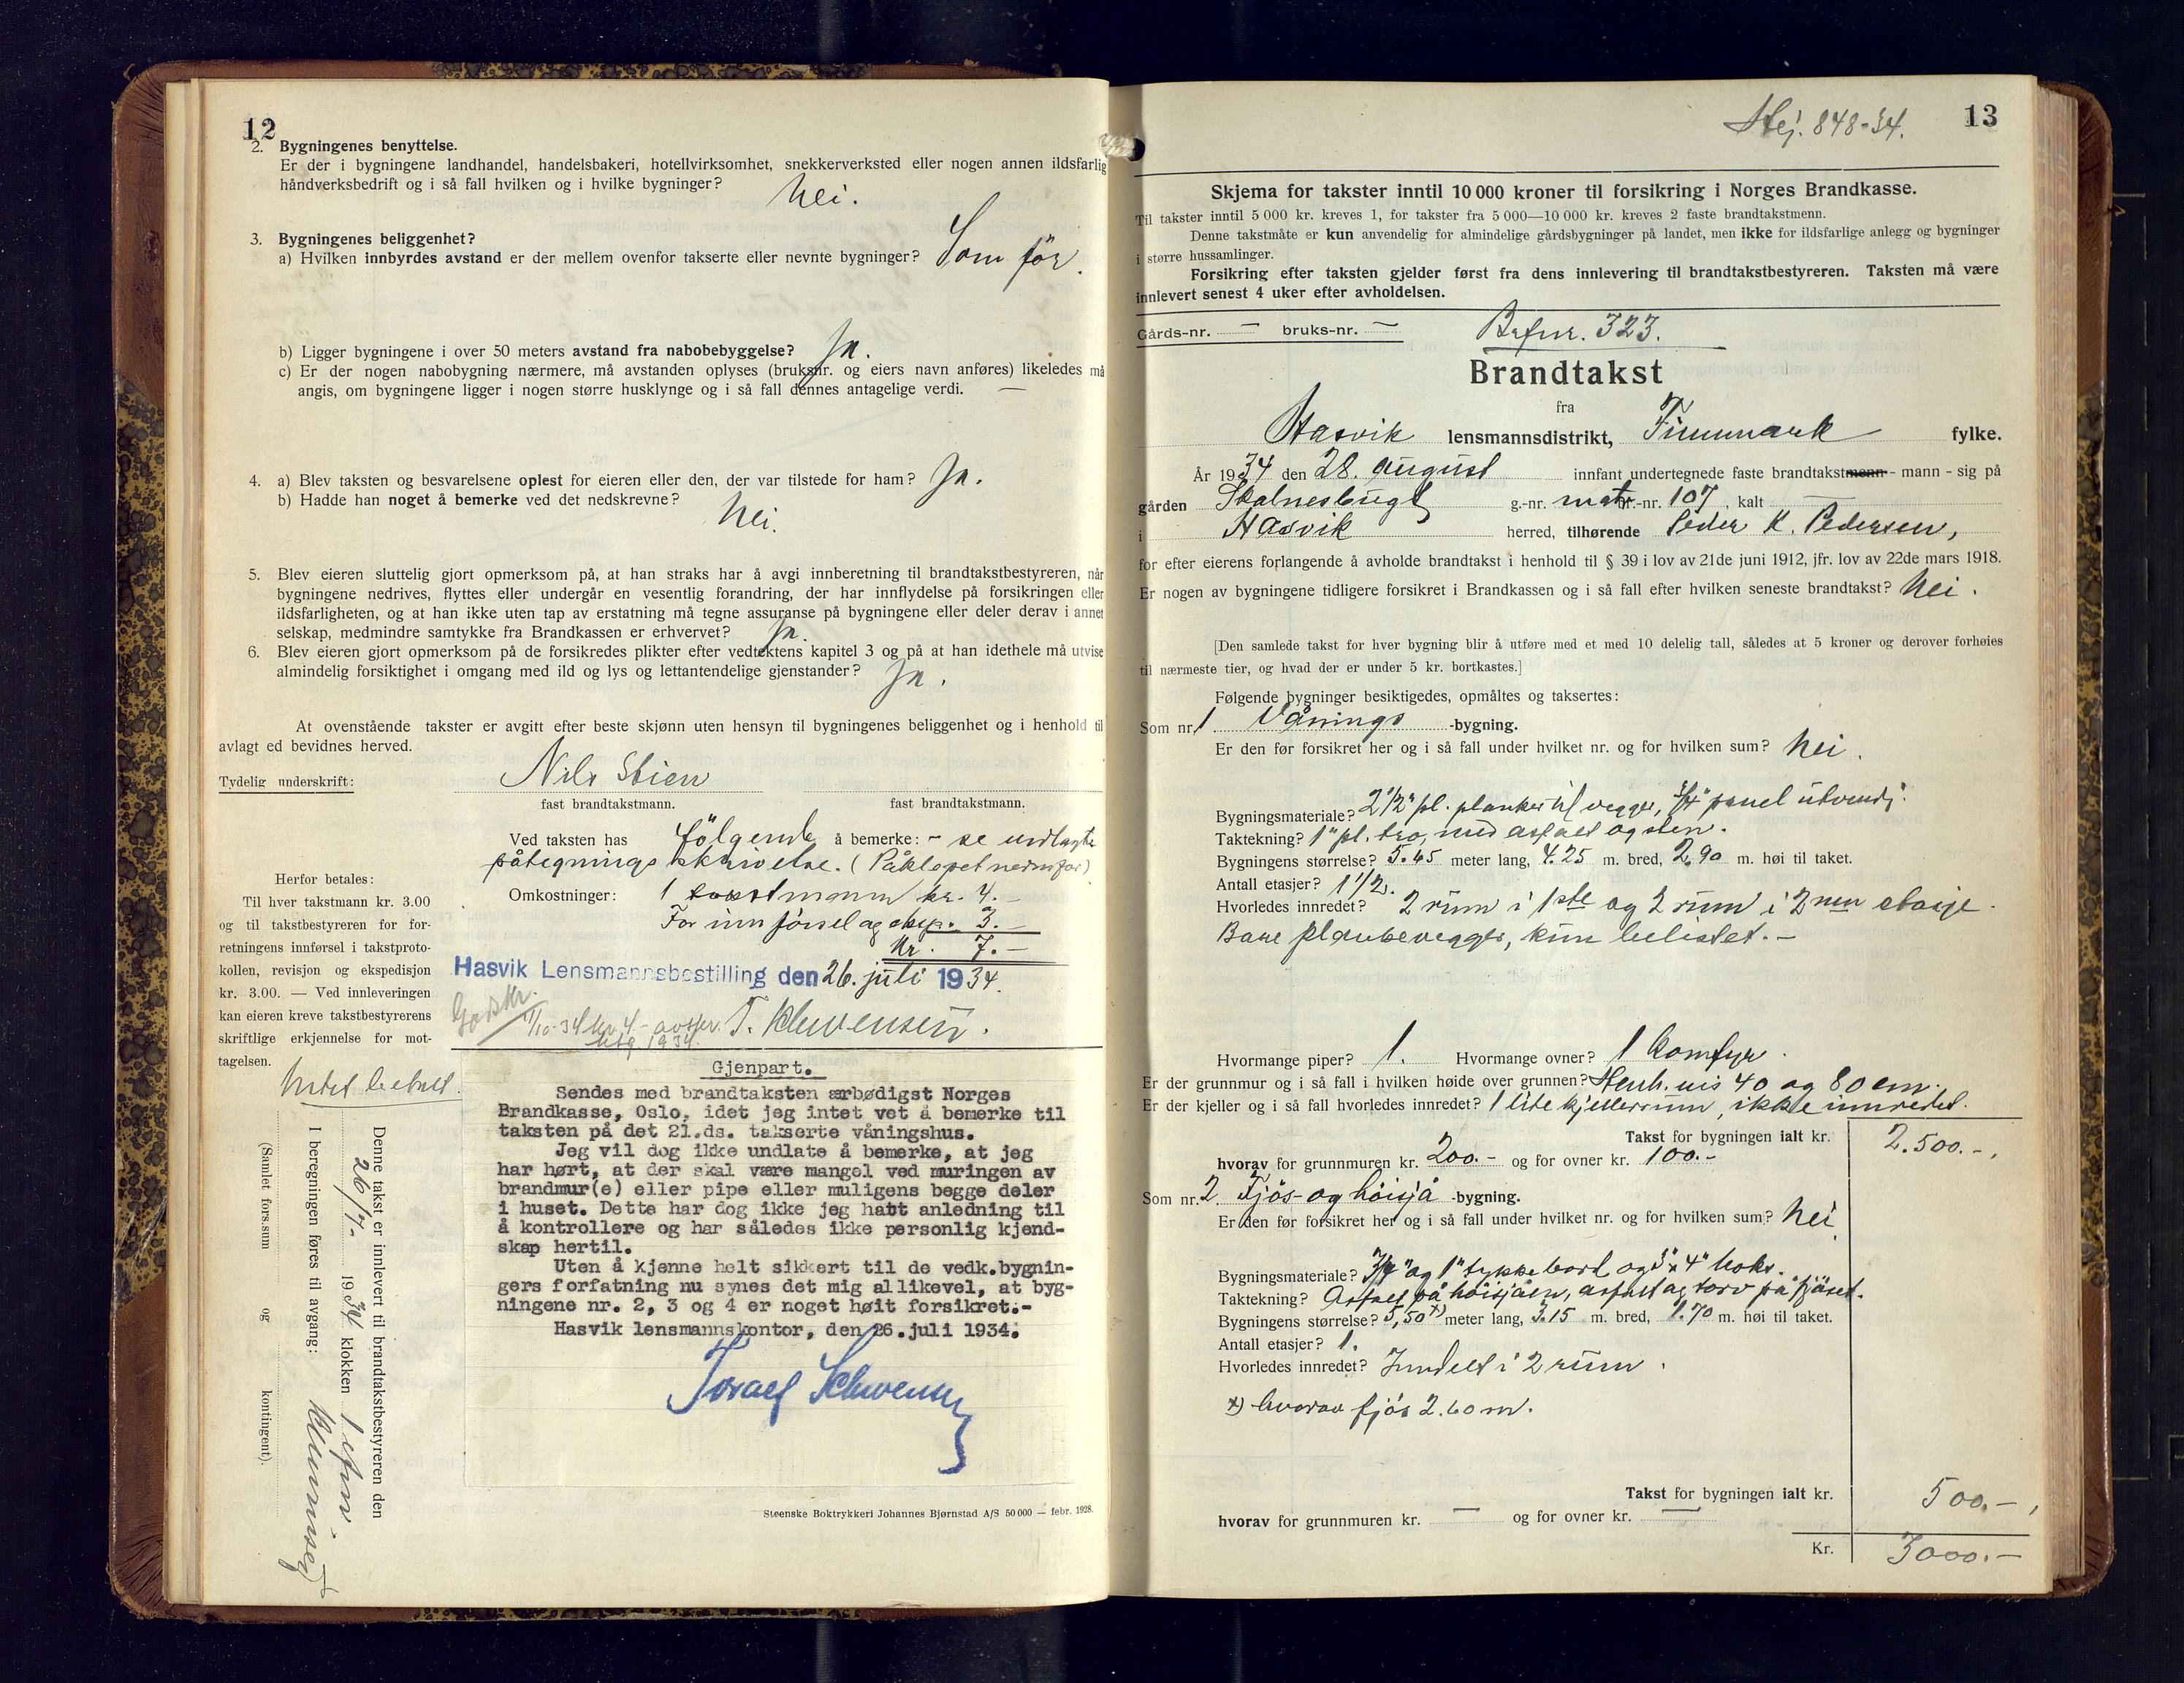 12
2. Bygningenes benyttelse.
Er der i bygningene landhandel, handelsbakeri, hotellvirksomhet, snekkerverksted eller nogen annen ildsfarlig
håndverksbedrift og i så fall hvilken og i hvilke bygninger? Nei.
3. Bygningenes beliggenhet?
a) Hvilken innbyrdes avstand er der mellem ovenfor takserte eller nevnte bygninger? Som før.
b) Ligger bygningene i over 50 meters avstand fra nabobebyggelse? Ja.
c) Er der nogen nabobygning nærmere, må avstanden oplyses (bruksnr. og eiers navn anføres) likeledes må
angis, om bygningene ligger i nogen større husklynge og i så fall dennes antagelige verdi. —
4. a) Blev taksten og besvarelsene oplest for eieren eller den, der var tilstede for ham? Ja.
b) Hadde han noget å bemerke ved det nedskrevne? Nei.
5. Blev eieren sluttelig gjort opmerksom på, at han straks har å avgi innberetning til brandtakstbestyreren, når
bygningene nedrives, flyttes eller undergår en vesentlig forandring, der har innflydelse på forsikringen eller
ildsfarligheten, og at han ikke uten tap av erstatning må tegne assuranse på bygningene eller deler derav i annet
selskap, medmindre samtykke fra Brandkassen er erhvervet? Ja.
6. Blev eieren gjort opmerksom på de forsikredes plikter efter vedtektens kapitel 3 og på at han idethele må utvise
almindelig forsiktighet i omgang med ild og lys og lettantendelige gjenstander? Ja.
At ovenstående takster er avgitt efter beste skjønn uten hensyn til bygningenes beliggenhet og i henhold til
avlagt ed bevidnes herved.
Tydelig underskrift: Nils Stien
fast brandtakstmann. fast brandtakstmann.
Ved taksten has følgende å bemerke: - se innlagte
påtegningsskrivelse. (Påklepet nedenfor)
Omkostninger: 1 takstmann kr. 4.-
For innførsel og eksp. 3.-
Kr. 7.-
Hasvik Lensmannsbestilling den 26. juli 1934.
T. Schwensen.
Herfor betales:
Til hver takstmann kr. 3.00
og til takstbestyreren for for-
retningens innførsel i takstproto-
kollen, revisjon og ekspedisjon
kr. 3.00. — Ved innleveringen
kan eieren kreve takstbestyrerens
skriftlige erkjennelse for mot-
tagelsen.
Intet betalt.
Gjenpart.
Sendes med brandtaksten ærbødigst Norges
Brandkasse, Oslo, idet jeg intet vet å bemerke til
taksten på det 21.ds. takserte våningshus.
Jeg vil dog ikke undlate å bemerke, at jeg
har hørt, at der skal være mangel ved muringen av
brandmur(e) eller pipe eller muligens begge deler
i huset. Dette har dog ikke jeg hatt anledning til
å kontrollere og har således ikke personlig kjend-
skap hertil.
Uten å kjenne helt sikkert til de vedk.bygnin-
gers forfatning nu synes det mig allikevel, at byg-
ningene nr. 2, 3 og 4 er noget høit forsikret.-
Hasvik lensmannskontor, den 26.juli 1934.
Denne takst er innlevert til brandtakstbestyreren den
26/7- 1934 klokken 1 efm
I beregningen føres til avgang:
(Samlet fors.sum og kontingent).
Steenske Boktrykkeri Johannes Bjørnstad A/S 50 000 — febr. 1928.
Hej. 848-34. 13
Skjema for takster inntil 10 000 kroner til forsikring i Norges Brandkasse.
Til takster inntil 5 000 kr. kreves 1, for takster fra 5 000—10 000 kr. kreves 2 faste brandtakstmenn.
Denne takstmåte er kun anvendelig for almindelige gårdsbygninger på landet, men ikke for ildsfarlige anlegg og bygninger
i større hussamlinger.
Forsikring efter taksten gjelder først fra dens innlevering til brandtakstbestyreren. Taksten må være
innlevert senest 4 uker efter avholdelsen.
Gårds-nr. — bruks-nr. — Brfnr. 323.
Brandtakst
fra
Hasvik lensmannsdistrikt, Finnmark fylke.
År 1934 den 28. august innfant undertegnede faste brandtakstmenn - mann - sig på
gården Skalnesbugt g.-nr. matr.-nr. 107, kalt
i Hasvik herred, tilhørende Peder K. Pedersen,
for efter eierens forlangende å avholde brandtakst i henhold til § 39 i lov av 21de juni 1912, jfr. lov av 22de mars 1918.
Er nogen av bygningene tidligere forsikret i Brandkassen og i så fall efter hvilken seneste brandtakst? Nei.
[Den samlede takst for hver bygning blir å utføre med et med 10 delelig tall, således at 5 kroner og derover forhøies
til nærmeste tier, og hvad der er under 5 kr. bortkastes.]
Følgende bygninger besiktigedes, opmåltes og taksertes:
Som nr. 1 Vånings -bygning.
Er den før forsikret her og i så fall under hvilket nr. og for hvilken sum? Nei.
Bygningsmateriale? 2 1/2" pl. planker i vegger, 3/4" panel utvendig.
Taktekning? 1" pl. tro, med asfalt og sten.
Bygningens størrelse? 5.45 meter lang, 4.25 m. bred, 2,90 m. høi til taket.
Antall etasjer? 1 1/2.
Hvorledes innredet? 2 rum i 1ste og 2 rum i 2nen etasje.
Bare plankevegger, kun belistet.-
Hvormange piper? 1. Hvormange ovner? 1 komfyr.
Er der grunnmur og i så fall i hvilken høide over grunnen? Stenh. vis 40 og 80 cm.
Er der kjeller og i så fall hvorledes innredet? 1 lite kjellerrum, ikke innredet.
Takst for bygningen ialt kr. 2.500.-,
hvorav for grunnmuren kr. 200.- og for ovner kr. 100.-
Som nr. 2 Fjøs- og høisjå -bygning.
Er den før forsikret her og i så fall under hvilket nr. og for hvilken sum? Nei
Bygningsmateriale? 3/4" og 1" tykke bord og 3"x4" boks.
Taktekning? Asfalt på høisjåen, asfalt og torv på fjøset.
Bygningens størrelse? 5,50 x) meter lang, 3.15 m. bred, 1.70 m. høi til taket.
Antall etasjer? 1.
Hvorledes innredet? Inndelt i 2 rum.
x) hvorav fjøs 2.60 m.
Takst for bygningen ialt kr. 500.-,
hvorav for grunnmuren kr. — og for ovner kr. —
Kr. 3000.-